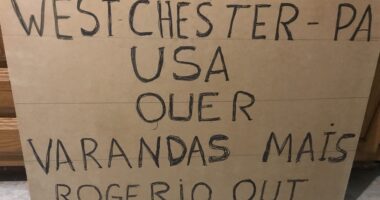 WESTCHESTER-PA
USA
QUER
VARANDAS MAIS
ROGERIO OUT